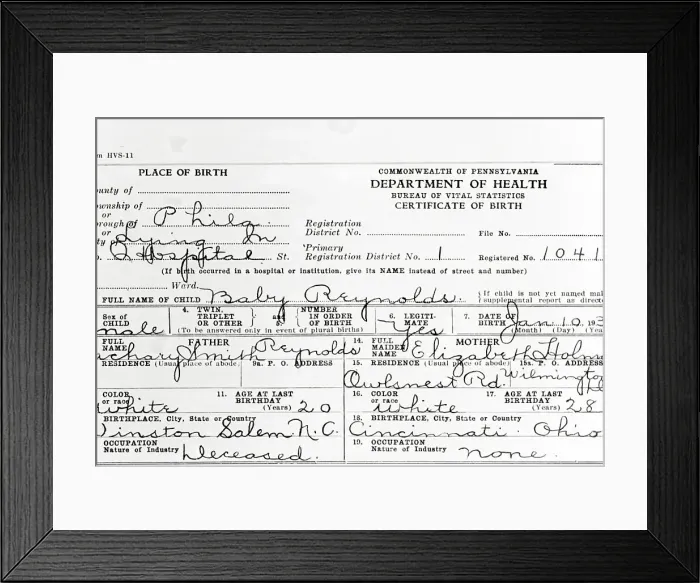 m HVS-11
PLACE OF BIRTH
COMMONWEALTH OF PENNSYLVANIA
DEPARTMENT OF HEALTH
BUREAU OF VITAL STATISTICS
CERTIFICATE OF BIRTH
unty of
wnship of
or
rough of Phila.
or
ty Lying In
Hospital St.
Registration
District No.
File No.
Primary
Registration District No. 1
Registered No. 1041
(If birth occurred in a hospital or institution, give its NAME instead of street and number)
Ward.
FULL NAME OF CHILD Baby Reynolds.
If child is not yet named mak
supplemental report as direct
Sex of
CHILD male
4. TWIN,
TRIPLET
OR OTHER
and
NUMBER
IN ORDER
OF BIRTH
(To be answered only in event of plural births)
6. LEGITI-
MATE Yes
7. DATE OF
BIRTH Jan 10, 193
(Month) (Day) (Yea
FULL
NAME FATHER
achary Smith Reynolds
RESIDENCE (Usual place of abode. 9a. P. O. ADDRESS
14. FULL
MAIDEN
NAME MOTHER
Elizabeth Holm
15. RESIDENCE (Usual place of abode) 15a. P. O. ADDRESS
Owlsnest Rd. Wilmington
COLOR
or race white
11. AGE AT LAST
BIRTHDAY
(Years) 20
16. COLOR
or race white
17. AGE AT LAST
BIRTHDAY
(Years) 28
BIRTHPLACE, City, State or Country
Winston Salem N.C.
18. BIRTHPLACE, City, State or Country
Cincinnati Ohio
OCCUPATION
Nature of Industry Deceased.
19. OCCUPATION
Nature of Industry none.